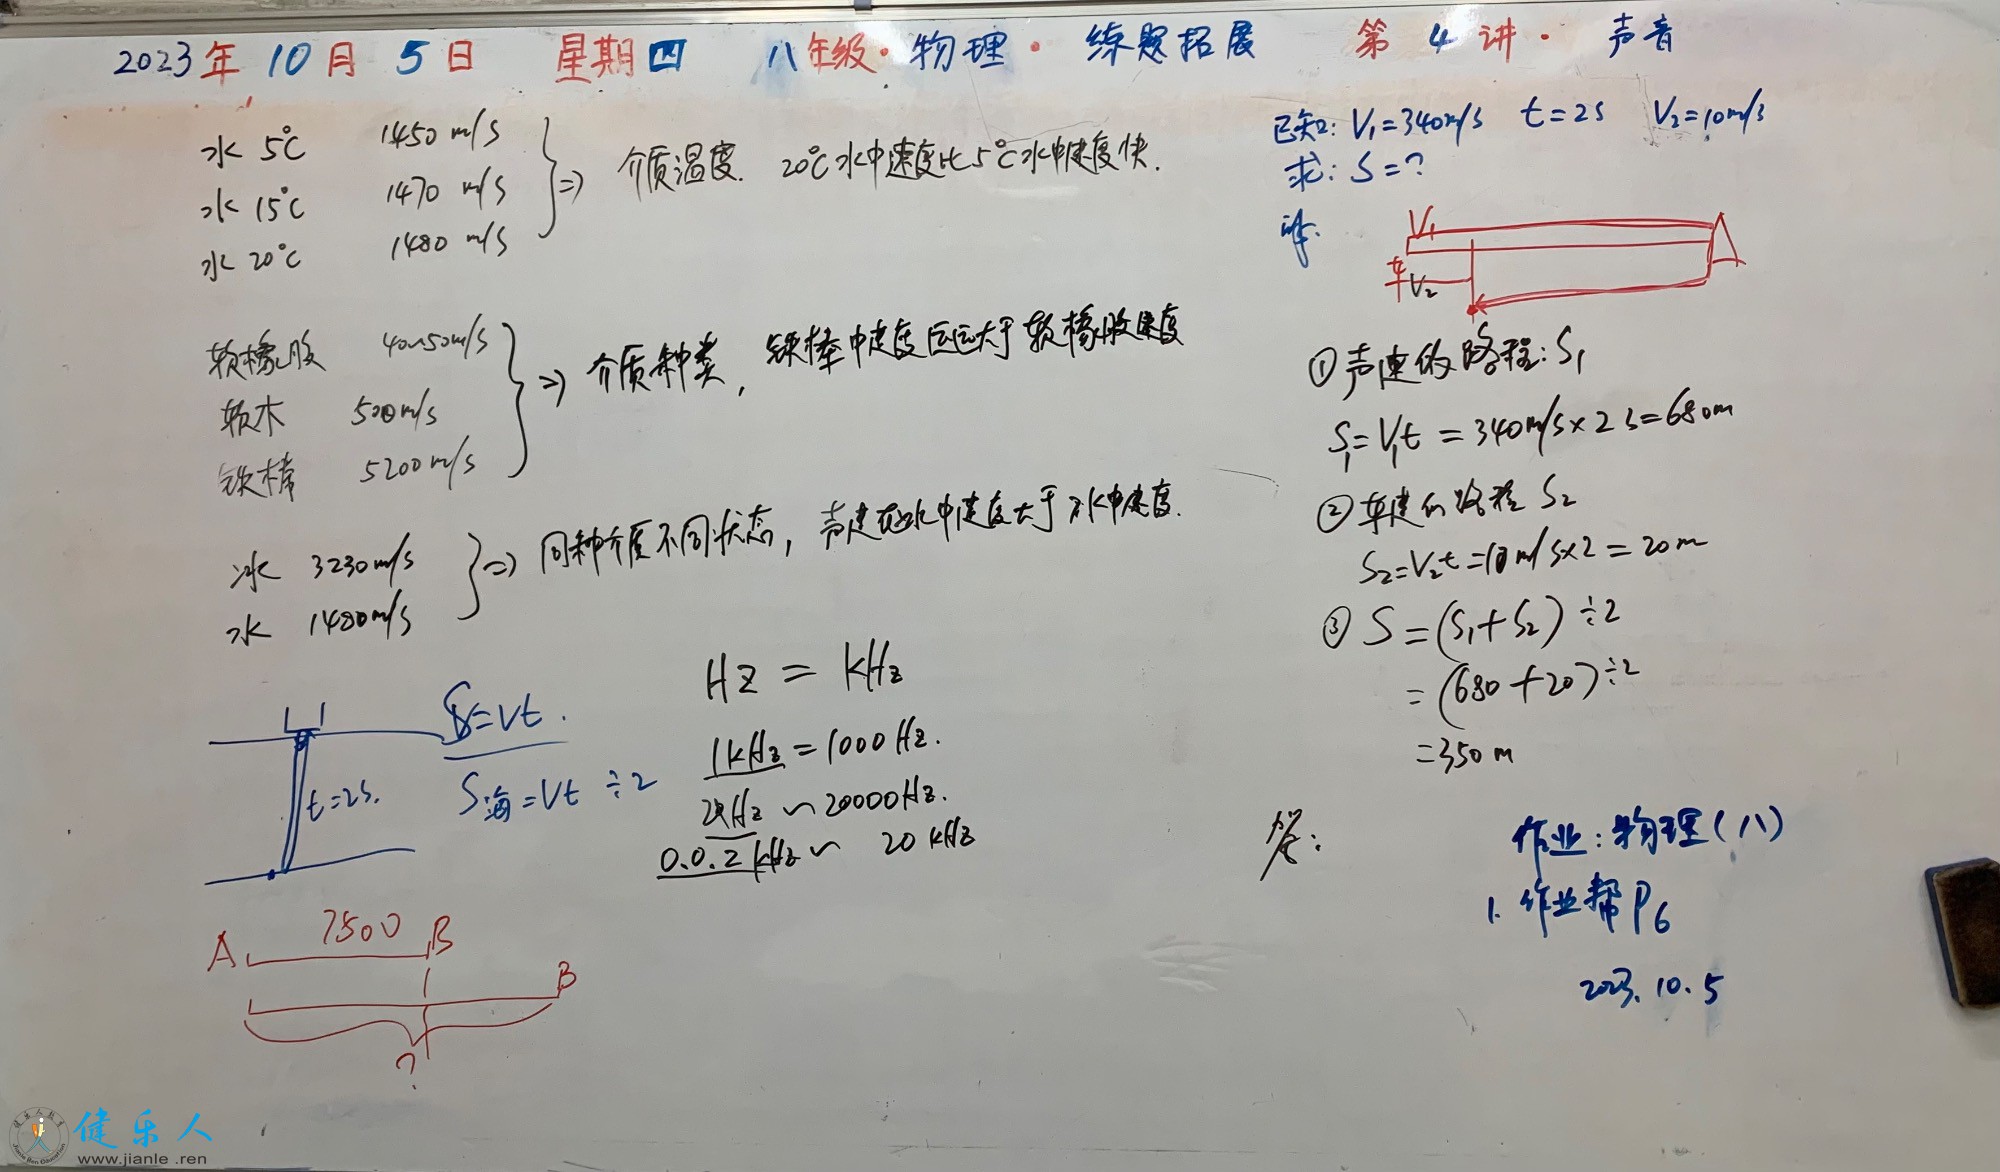 2023年 10月 5日 星期四 八年级·物理· 练题拓展 第 4 讲· 声音
水 5℃ 1450 m/s
水 15℃ 1470 m/s
水 20℃ 1480 m/s
⇒ 介质温度. 20℃水中速度比5℃水中速度快.
软橡胶 40~50m/s
软木 500m/s
铁棒 5200m/s
⇒ 介质种类, 铁棒中速度远远大于软橡胶速度
冰 3230m/s
水 1480m/s
⇒ 同种介质不同状态, 声速在冰中速度大于水中速度.
S=Vt.
t=2s.
S海=Vt ÷2
Hz = kHz
1kHz = 1000Hz.
~ 20000Hz.
0.0.2 kHz ~ 20 kHz
A 7500 B
B
?
已知: V₁=340m/s t=2s V₂=10m/s
求: S=?
V₁
车 V₂
①声速的路程: S₁
S₁=V₁t = 340m/s×2s=680m
②车速的路程 S₂
S₂=V₂t=10m/s×2=20m
③ S=(S₁+S₂)÷2
=(680+20)÷2
=350m
答:
作业: 物理(八)
1. 作业帮 P6
2023.10.5
健乐人
www.jianle.ren